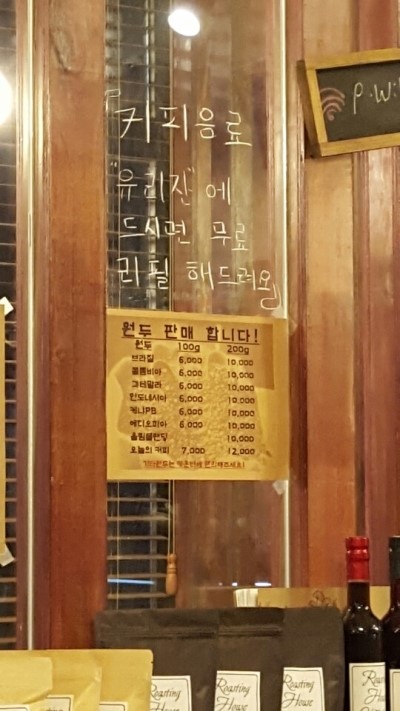 커피음료
"유리잔"에
드시면 무료
리필 해드려요
P.W:
원두 판매 합니다!
원두 100g 200g
브라질 6,000 10,000
콜롬비아 6,000 10,000
과테말라 6,000 10,000
인도네시아 6,000 10,000
케냐PB 6,000 10,000
에디오피아 6,000 10,000
하우스블랜딩 10,000
오늘의 커피 7,000 12,000
Roasting House
Roasting House
Roasting House
Roasting House